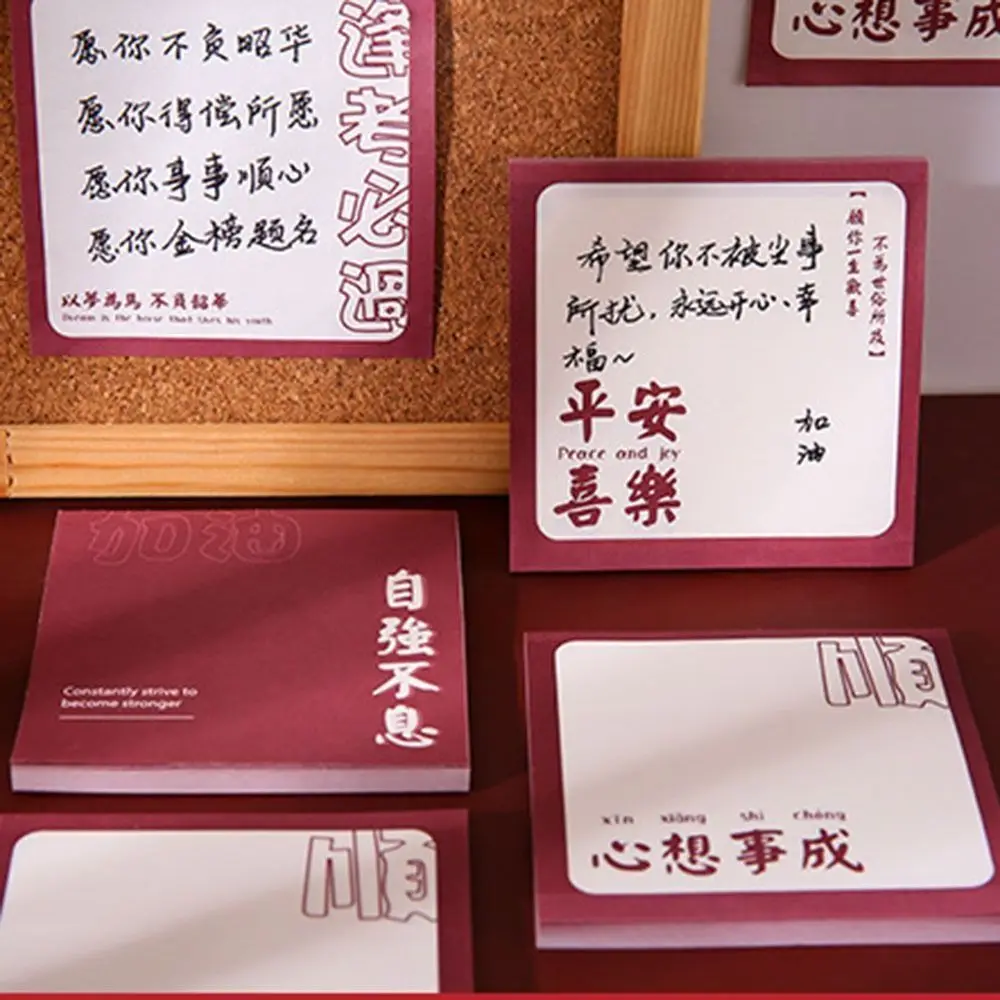 愿你不负昭华
愿你得偿所愿
愿你事事顺心
愿你金榜题名
逢考必過
以夢為馬 不負韶華
心想事成
【願你一生歡喜
不為世俗所及】
希望你不被尘事
所扰,永远开心、幸
福~
平安
Peace and joy
喜樂
加
油
加油
自強不息
Constantly strive to
become stronger
順
xīn xiǎng shì chéng
心想事成
順